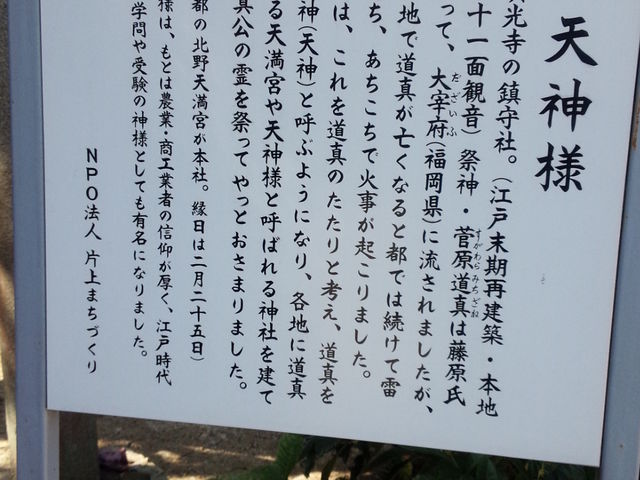 天神様
光寺の鎮守社。（江戸末期再建築・本地
十一面観音）祭神・菅原道真は藤原氏
すがわらみちざね
って、大宰府（福岡県）に流されましたが、
だざいふ
地で道真が亡くなると都では続けて雷
ち、あちこちで火事が起こりました。
は、これを道真のたたりと考え、道真を
神（天神）と呼ぶようになり、各地に道真
る天満宮や天神様と呼ばれる神社を建て
真公の霊を祭ってやっとおさまりました。
都の北野天満宮が本社。縁日は二月二十五日）
様は、もとは農業・商工業者の信仰が厚く、江戸時代
学問や受験の神様としても有名になりました。
NPO法人 片上まちづくり